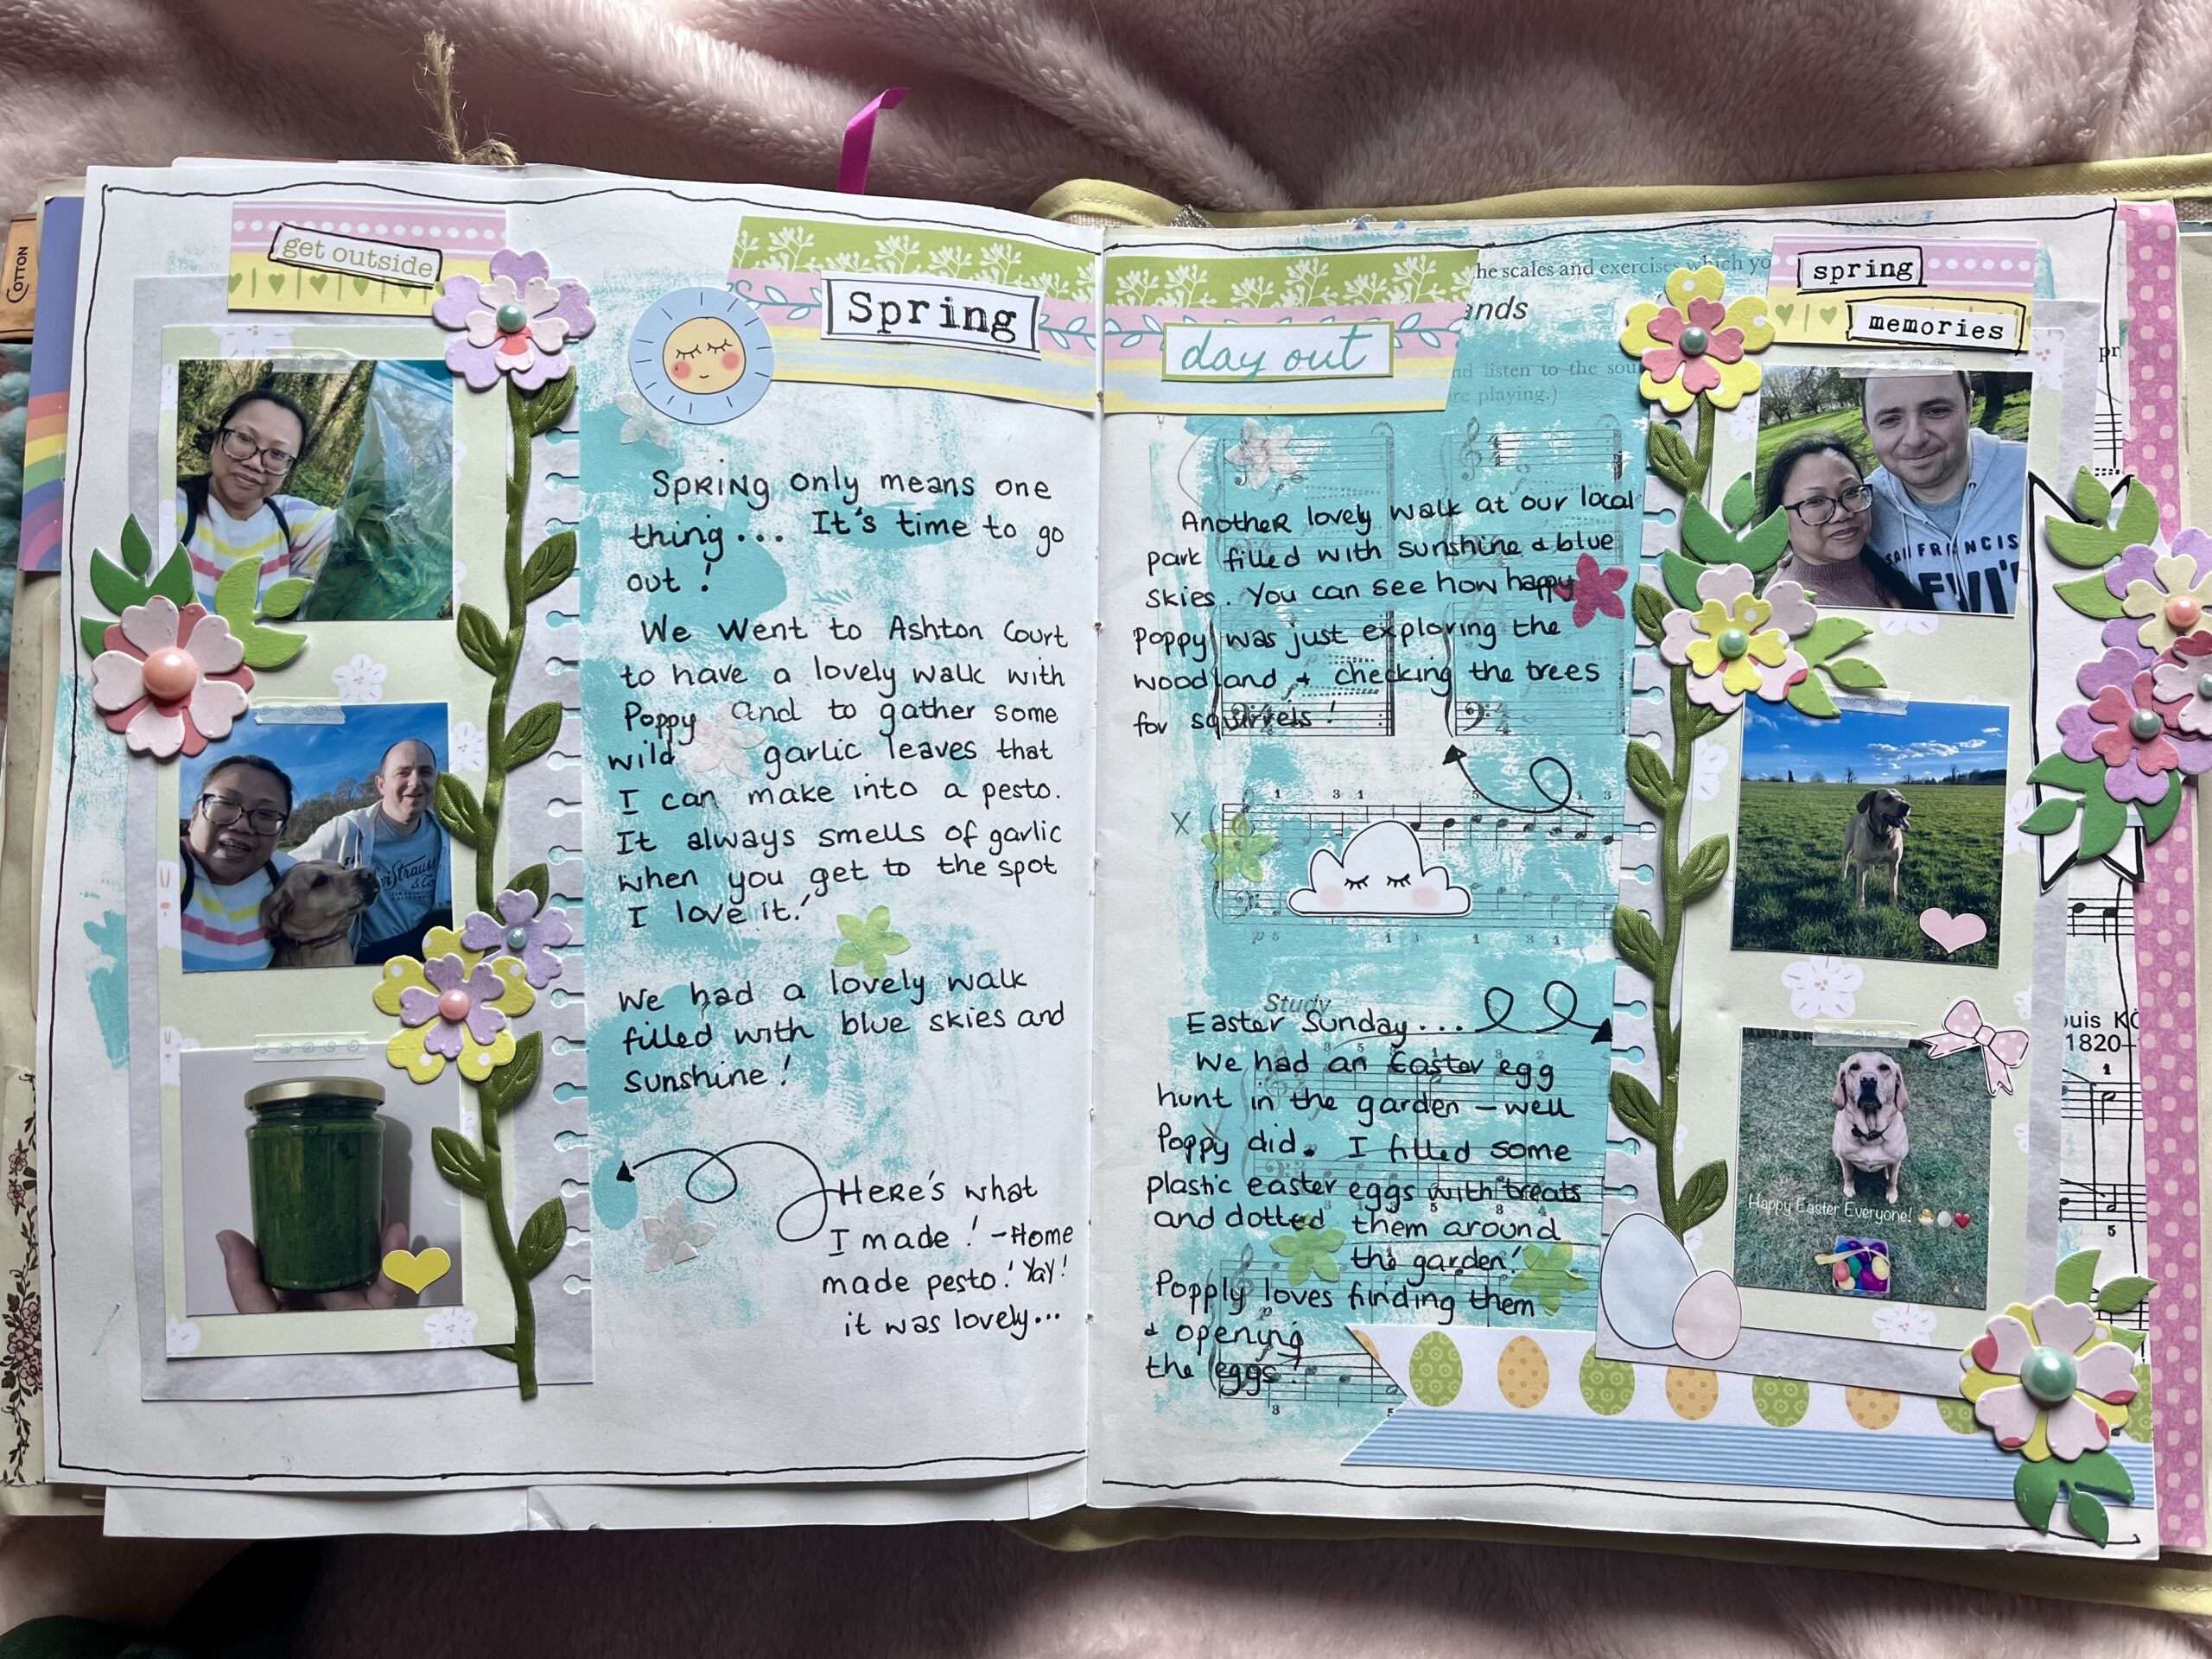 COTTON
get outside
Spring
SPRING only means one
thing... It's time to go
out!
We went to Ashton Court
to have a lovely walk with
Poppy and to gather some
wild garlic leaves that
I can make into a pesto.
It always smells of garlic
when you get to the spot
I love it!
We had a lovely walk
filled with blue skies and
sunshine!
HERE'S what
I made! - Home
made pesto! Yay!
it was lovely...
Strauss
& Co
day out
he scales and exercises which yo
ands
nd listen to the sou
re playing.)
Another lovely walk at our local
park filled with sunshine & blue
skies. You can see how happy
poppy was just exploring the
woodland + checking the trees
for squirrels!
X
Study
Easter Sunday...
We had an Easter egg
hunt in the garden - well
Poppy did. I filled some
plastic easter eggs with treats
and dotted them around
the garden!
Popply loves finding them
& opening
the eggs!
spring
memories
SAN FRANCIS
LEVI'S
Happy Easter Everyone! 🐣🥚❤️
pr
ouis KÖ
1820–